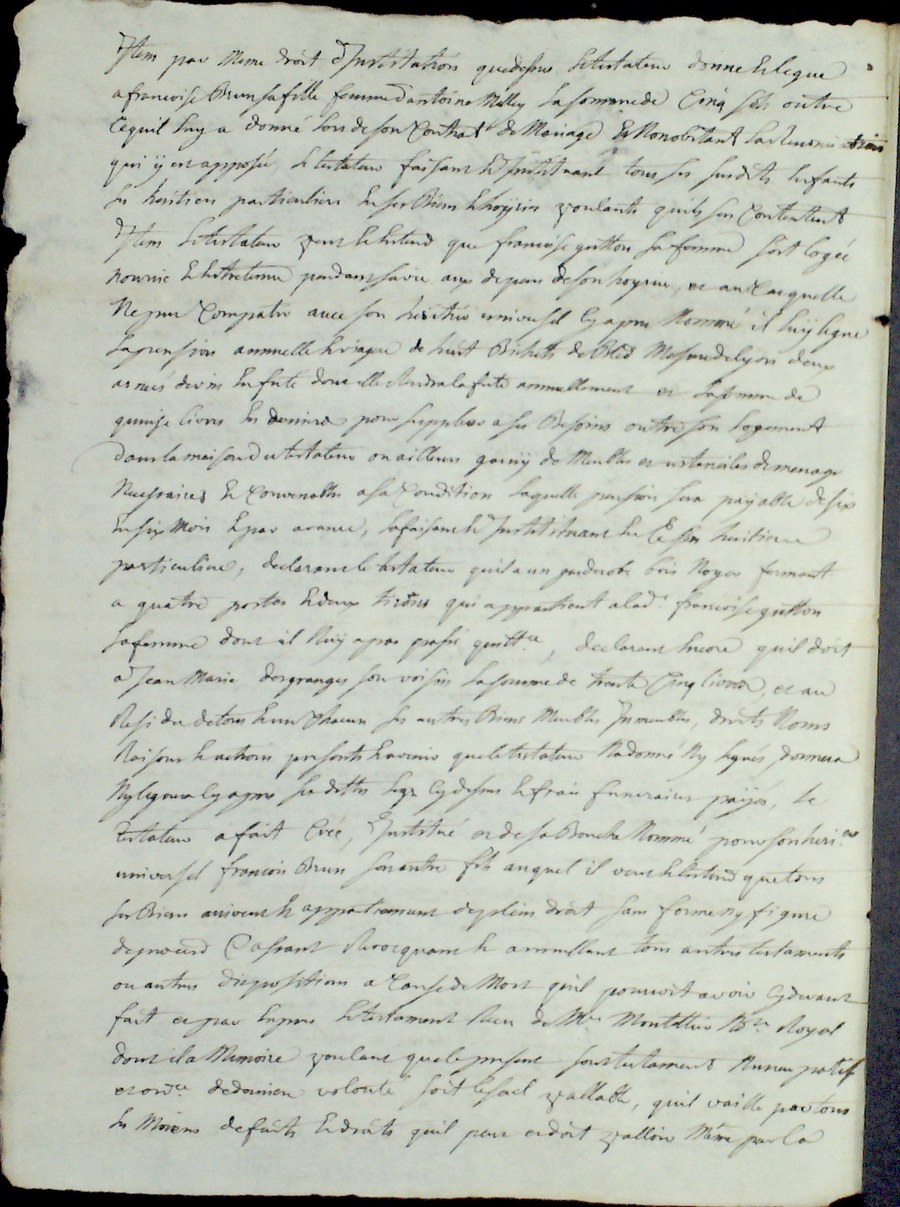 Item par meme droit d'Institution que dessus le testateur donne et legue
a francoise Brun sa fille femme d'antoine Milly la somme de Cinq sols outre
ce quil luy a donné lors de son Contrat de Mariage Et Nonobstant la
qui y est apposée, le testateur faisant et instituant tous ses susdits Enfants
ses héritiers particuliers En ses Biens Et hoyries voulants quils sen Contentent
Item le testateur veut Et Entend que francoise guttou sa femme soit Logée
nourrie Et Entretenue pendant sa vie aux depens de son hoyrie, et au Cas quelle
Ne put Compatir avec son héritier universel Cy apres Nommé il luy legue
la pension annuelle Et viagere de huit Bichetts de Bled Mesure de lyon deux
asnées de vin En fute dont elle Rendra la fute annuellement et la somme de
quinze livres En deniers pour suppleer a ses Besoins outre son Logement
dans la maison du testateur ou ailleurs garny de Meubles et ustenciles de menage
Necessaires Et Convenables a sa Condition laquelle pension sera payable de six
En six Mois Et par avance, la faisant Et Instituant En Ce son heritiere
particuliere, declarant le testateur quil a un garderobe bois Noyer fermant
a quatre portes Et deux tiroirs qui appartient a lad.e francoise guttou
sa femme dont il luy a pas passé quitt.ce, declarant Encore quil doit
a Jean Marie desgranges son voisin la somme de trente Cinq livres, et au
Residu de tous Et un Chacun ses autres Biens Meubles Immeubles, droits Noms
Raisons Et actions presents Et avenir que le testateur Na donné Ny legués, donnera
Ny leguera Cy apres ses dettes legs Cy dessus Et frais funeraires payés, Le
testateur a fait Créé, Institué et de sa Bouche Nommé pour son heri.er
universel francois Brun son autre fils auquel il veut Et Entend que tous
ses Biens arrivent Et appartiennent de plein droit sans forme ny figure
de procès Cassant Revocquant Et annullant tous autres testaments
ou autres dispositions a Cause de Mort quil pourroit avoir Cy devant
fait et par Exprès le testament Reçu de M.e Montellier No.re Royal
dont il a Memoire voulant que le present son testament Nuncupatif
et ord.ce de derniere volonté soit le seul vallable, quil vaille par tous
les Moiens de faits Et droits quil peut et doit valloir Même par la